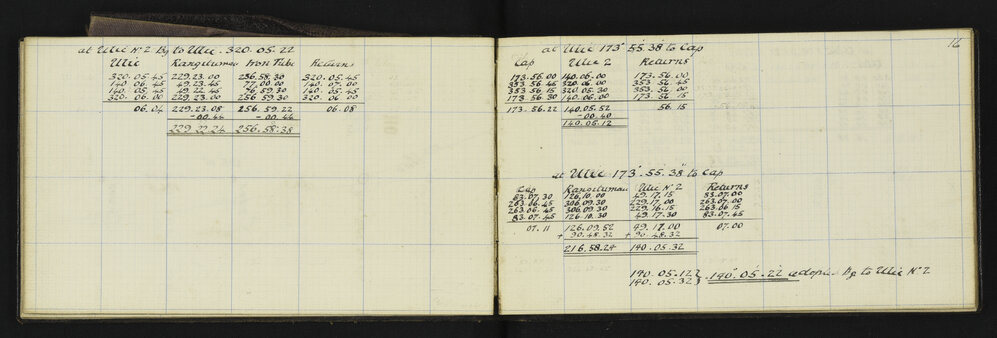 at Ulie No 2 Bg to Ulie. 320.05.22
Ulie Rangitumau Iron Tube Returns
320.05.45 229.23.00 256.58.30 320.05.45
140.06.45 49.23.45 77.00.00 140.07.00
140.05.45 49.22.45 76.59.30 140.05.45
320.06.00 229.23.00 256.59.30 320.06.00
06.04 229.23.08 256.59.22 06.08
-00.44 -00.44
229.22.24 256.58.38
16
at Ulie 173°55'38" to Cap
Cap Ulie 2 Returns
173.56.00 140.06.00 173.56.00
353.56.45 320.06.00 353.56.45
353.56.15 320.05.30 353.56.00
173.56.30 140.06.00 173.56.15
173.56.22 140.05.52 56.15
-00.40
140.05.12
at Ulie 173°.55'.38" to Cap
Cap Rangitumau Ulie No 2 Returns
83.07.30 126.10.00 49.17.15 83.07.00
263.06.45 306.09.30 229.17.00 263.07.00
263.06.45 306.09.30 229.16.15 263.06.15
83.07.45 126.10.30 49.17.30 83.07.45
07.11 126.09.52 49.17.00 07.00
+90.48.32 +90.48.32
216.58.24 140.05.32
140.05.12
140.05.32 } 140°.05'.22" adopted Bg to Ulie No 2